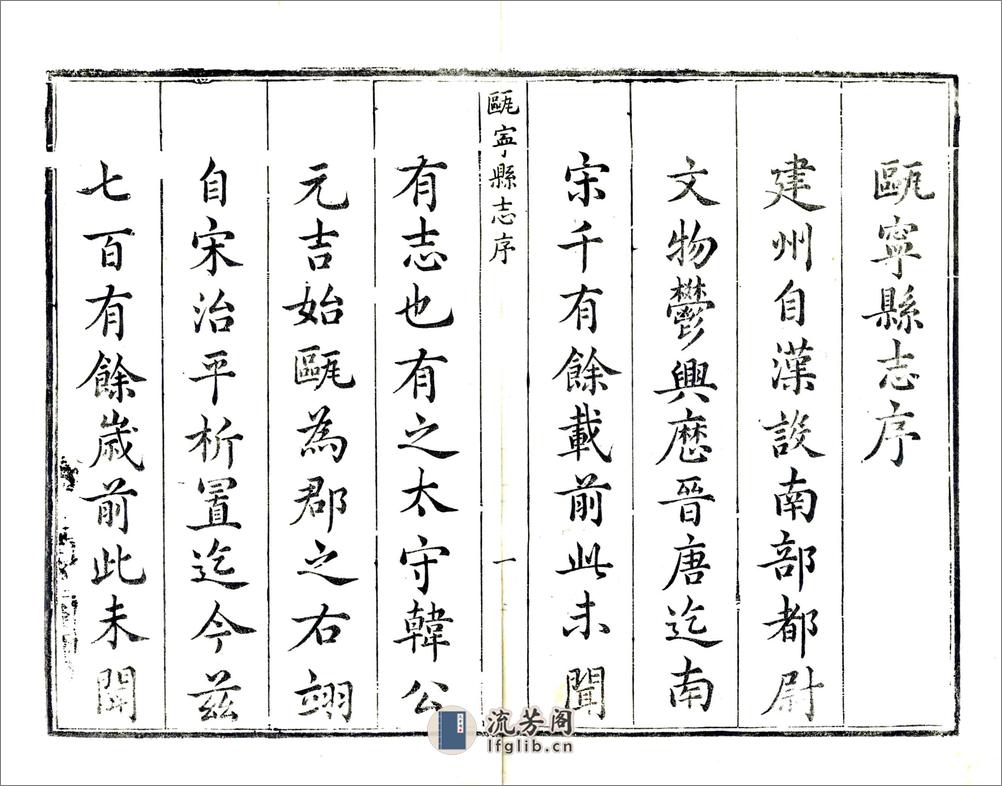 甌寧縣志序
建州自漢設南部都尉
文物鬱興歷晉唐迄南
宋千有餘載前此未聞
甌寧縣志序
一
有志也有之太守韓公
元吉始甌為郡之右翊
自宋治平析置迄今茲
七百有餘歲前此未聞
流芳阁
lfglib.cn